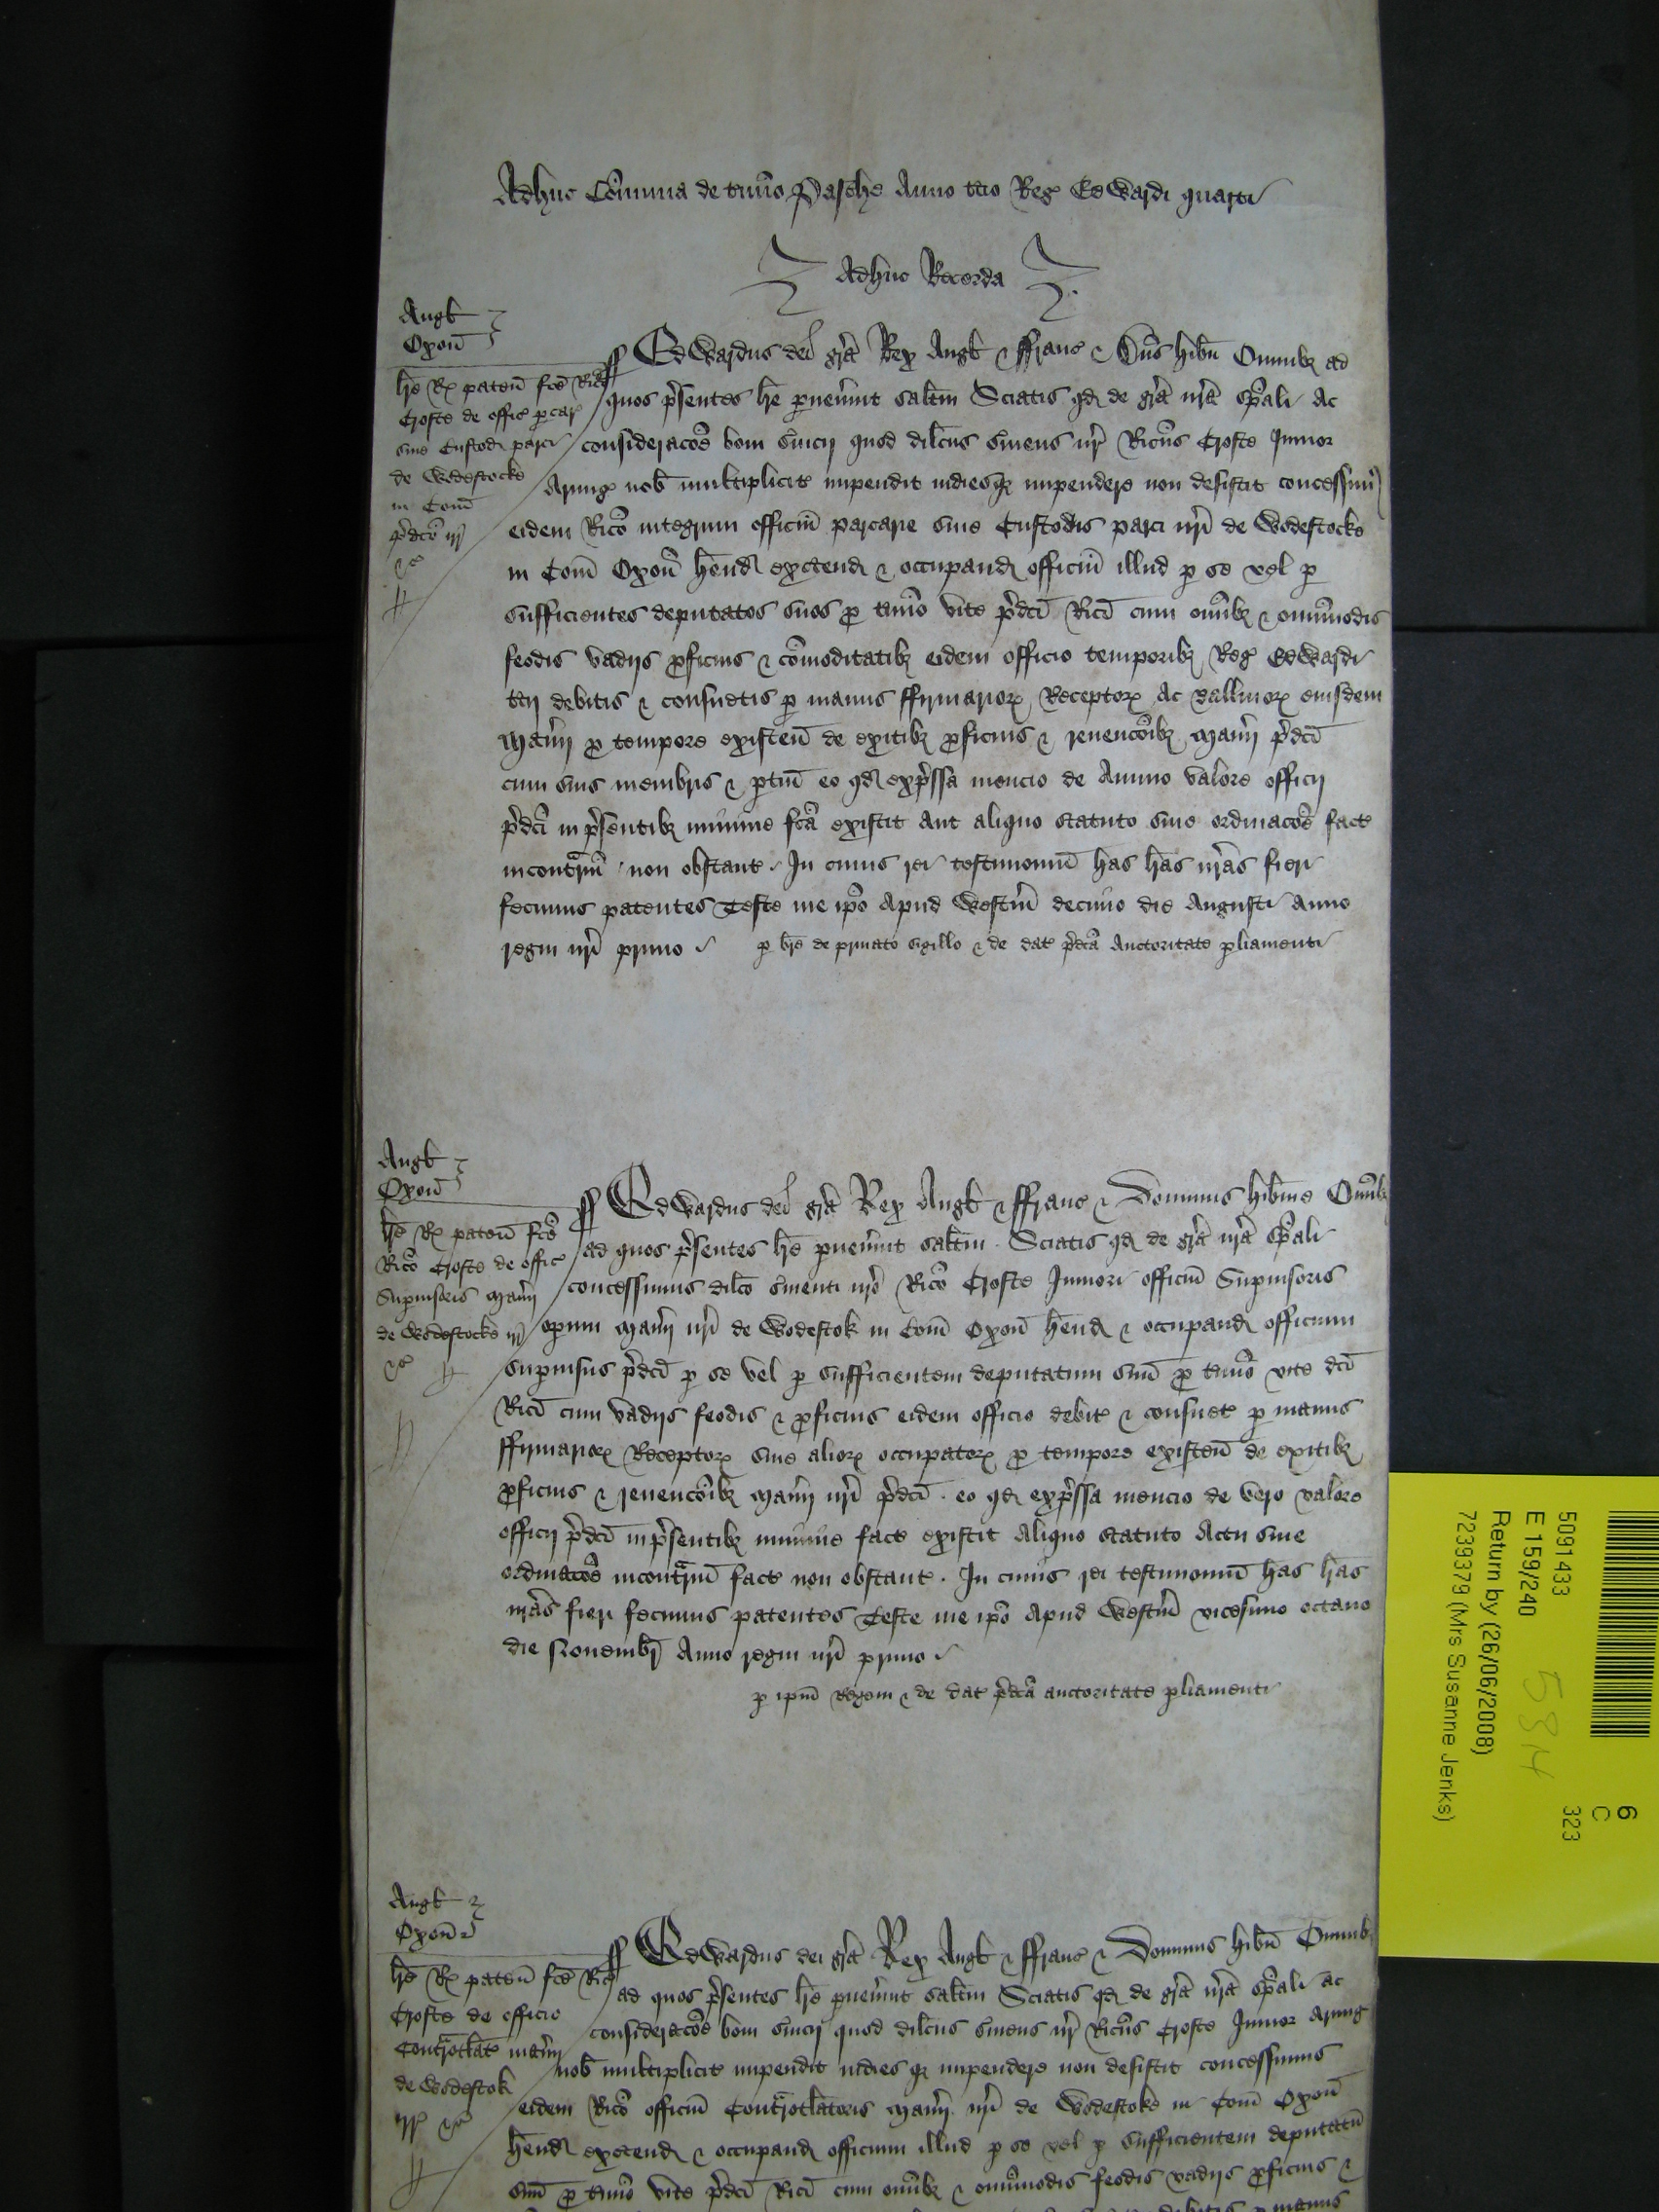 Adhuc Cõmunia de tmĩo Pasche Anno tcio Reg Edwardi quarti
Adhuc Recorda
Angł
Oxoñ
łre R pateñ fcẽ Rico
Crofte de offic pcar
sive Custod parci
de Wodestocke
in Com̃
p̃dco irr
&c
Edwardus dei gr̃a Rex Angł & ffranc & Dñs hib̃n Omnibȝ ad
quos p̃sentes łre pueñint salt̃m Sciatis qd de gr̃a nr̃a sp̃ali Ac
consideracõe boni s̃vicij quod dilc̃us s̃viens nr̃ Ric̃us Crofte Junior
Armig nob̃ multiplicit impendit indiesqȝ impendere non desistit concessim9
eidem Ricõ integrum officiũ parcarie sive Custodis parci nr̃i de Wodestocke
in Com̃ Oxoñ hend excẽnd & occupand officiũ illud p se vel p
sufficientes deputatos suos p tmĩo vite p̃dcĩ Ricĩ cum om̃ibȝ & omĩmodis
feodis vadijs pficuis & cõmoditatibȝ eidem officio temporibȝ Reg Edwardi
tcij debitis & consuetis p manus ffirmarior Receptor Ac Ballivor eiusdem
Mañij p tempore existeñ de exitibȝ pficuis & revencõibȝ Mañij p̃dcĩ
cum suis membris & ptiñ eo qd exp̃ssa mencio de Annuo valore officij
p̃dcĩ in p̃sentibȝ minime fcã existit Aut aliquo statuto sive ordinacõe fact
incontr̃iũ non obstant In cuius rei testimoniũ has łras nr̃as fieri
fecimus patentes Teste me ipõ Apud Westm̃ decimo die Augusti Anno
regni nr̃i primo p bre de privato sigillo & de dat p̃dcã Auctoritate pliamenti
Angł
Oxoñ
łre R pateñ fcẽ
Ricõ Crofte de offic
Supvisoris Mañij
de Wodestocke irr
&c
Edwardus dei gr̃a Rex Angł & ffranc & Dominus hib̃nie Om̃ibȝ
ad quos p̃sentes łre pueñint salt̃m Sciatis qd de gr̃a nr̃a sp̃ali
concessimus dilc̃o s̃vienti nr̃o Ricõ Crofte Juniori officiũ Supvisoris
opum Mañij nr̃i de Wodestok in Com̃ Oxoñ hend & occupand officium
supvisus p̃dcĩ p se vel p sufficientem deputatum suũ p tmĩo vite dcĩ
Ricĩ cum vadijs feodis & pficuis eidem officio debit & consuet p manus
ffirmarior Receptor sive alior occupator p tempore existeñ de exitibȝ
pficuis & revencõibȝ Mañij nr̃i p̃dcĩ eo qd exp̃ssa mencio de vero valore
officij p̃dcĩ inp̃sentibȝ minime fact existit Aliquo statuto Actu sive
ordinacõe incontr̃iũ fact non obstant In cuius rei testimoniũ has łras
nr̃as fieri fecimus patentes Teste me ipõ Apud Westm̃ vicesimo octavo
die Novembr̃ Anno regni nr̃i primo
p ipm̃ Regem & de dat p̃dcã auctoritate pliamenti
Angł
Oxoñ
łre R pateñ fcẽ Ricõ
Crofte de officio
Contr̃otłat mañij
de Wodestok
irr &c
Edwardus dei gr̃a Rex Angł & ffranc & Dominus hib̃n Omnibȝ
ad quos p̃sentes łre pueñint salt̃m Sciatis qd de gr̃a nr̃a sp̃ali ac
consideracõe boni s̃vicij quod dilc̃us s̃viens nr̃ Ric̃us Crofte Junior Armig
nob̃ multiplicit impendit indies qȝ impendere non desistit concessimus
eidem Ricõ officiũ Contr̃otłatoris Mañij nr̃i de Wodestoke in Com̃ Oxoñ
hend excẽnd & occupand officium illud p se vel p sufficientem deputatũ
suũ p tmĩo vite p̃dcĩ Ricĩ cum om̃ibȝ & omĩmodis feodis vadijs pficuis &
debitis p manus
5091433
E 159/240
Return by (26/06/2008)
7239379 (Mrs Susanne Jenks)
6
C
323